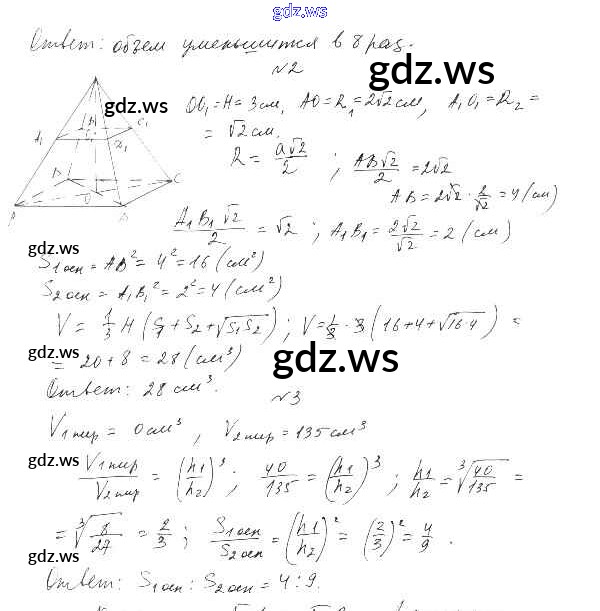 gdz.ws
Ответ: объем уменьшится в 8 раз.
gdz.ws
№2
gdz.ws
OO₁ = H = 3 см, AO = R₁ = 2√2 см, A₁O₁ = R₂ =
= √2 см.
R = a√2/2 ; AB√2/2 = 2√2
AB = 2√2 · 2/√2 = 4 (см)
A₁ C₁ B₁ B C O A D
A₁B₁√2/2 = √2 ; A₁B₁ = 2√2/√2 = 2 (см)
gdz.ws
S₁осн = AB² = 4² = 16 (см²)
S₂осн = A₁B₁² = 2² = 4 (см²)
V = 1/3 H (S₁ + S₂ + √S₁S₂) ; V = 1/3 · 3 (16 + 4 + √16·4) =
gdz.ws
= 20 + 8 = 28 (см³)
gdz.ws
Ответ: 28 см³.
№3
V₁пир = 0 см³ , V₂пир = 135 см³
gdz.ws
V₁пир/V₂пир = (h₁/h₂)³ ; 40/135 = (h₁/h₂)³ ; h₁/h₂ = ³√40/135 =
= ³√8/27 = 2/3 ; S₁осн/S₂осн = (h₁/h₂)² = (2/3)² = 4/9 .
gdz.ws
Ответ: S₁осн : S₂осн = 4 : 9.